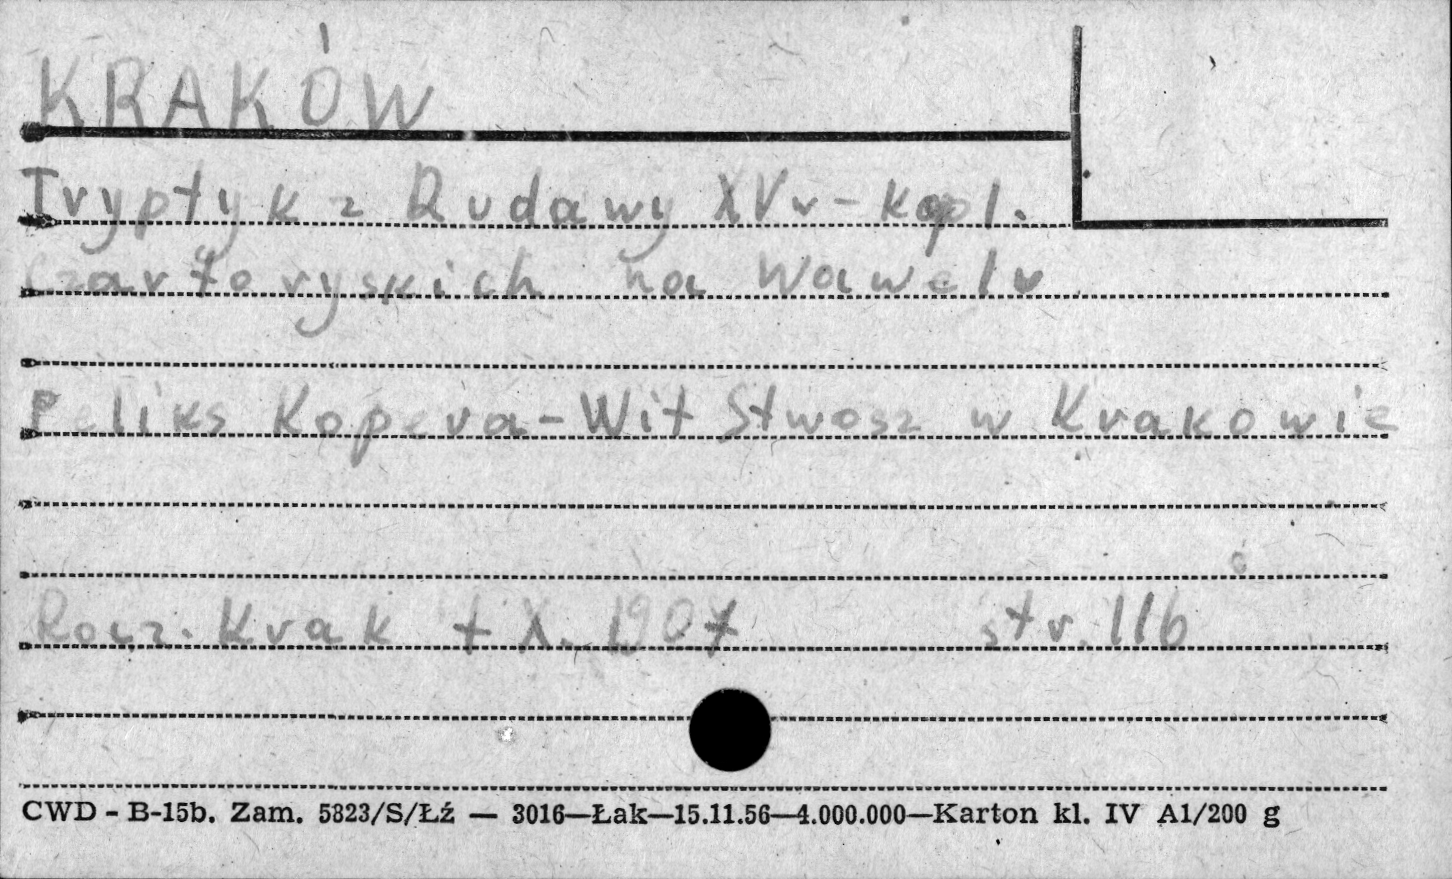 KRAKÓW
Tryptyk z Rudawy XVw - kapl.
Czartoryskich na Wawelu
Feliks Kopera - Wit Stwosz w Krakowie
Rocz. Krak t X. 1907 str. 116
CWD - B-15b. Zam. 5823/S/Łź — 3016—Łak—15.11.56—4.000.000—Karton kl. IV A1/200 g